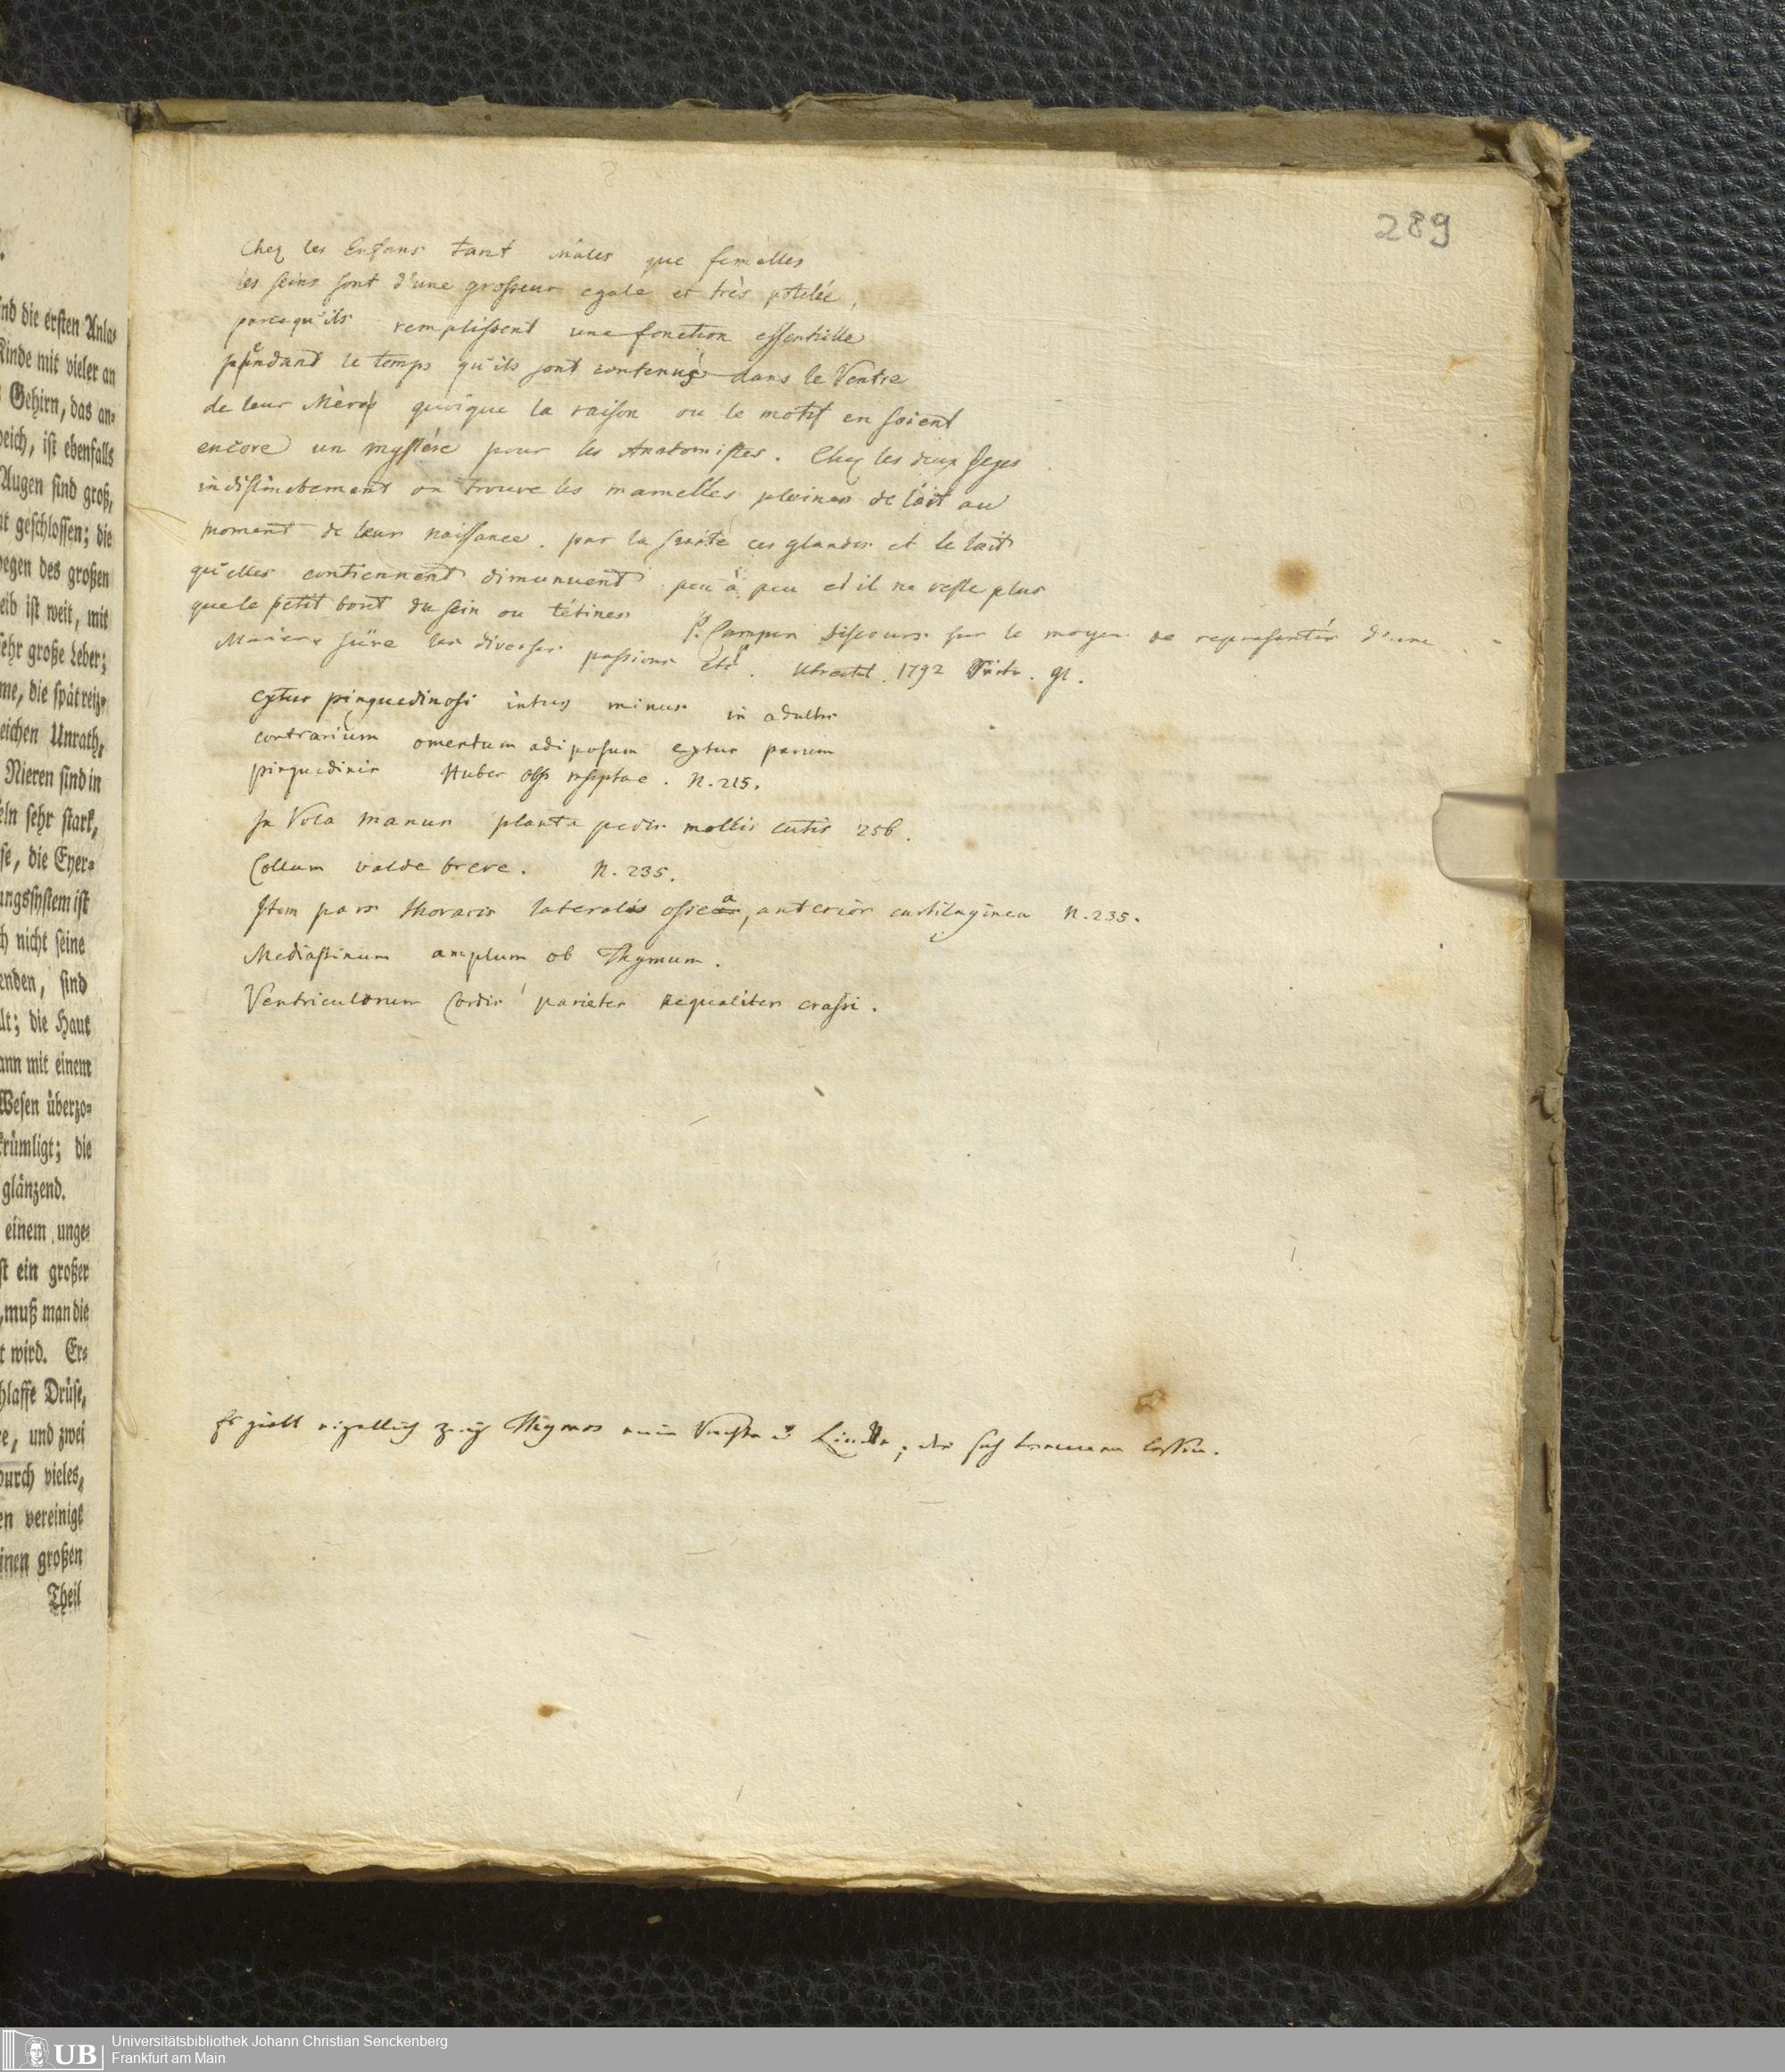 nd die ersten Anla-
Kinde mit vieler an
Gehirn, das an-
eich, ist ebenfalls
Augen sind groß,
t geschlossen; die
wegen des großen
eib ist weit, mit
sehr große Leber;
me, die spät reiz-
eichen Unrath,
Nieren sind in
eln sehr stark,
se, die Eyer-
ungssystem ist
ch nicht seine
enden, sind
lt; die Haut
ann mit einem
Wesen überzo-
krümligt; die
glänzend.
einem unge-
st ein großer
, muß man die
t wird. Er-
hlaffe Drüse,
e, und zwei
durch vieles,
en vereinigt
inen großen
Theil
289
Chez les Enfans tant mâles que femelles
les seins sont d'une grosseur egale et très potelée,
parcequ'ils remplissent une fonction essentielle
pendant le temps qu'ils sont contenus dans le Ventre
de leur Mère quoique la raison ou le motif en soient
encore un mystére pour les Anatomistes. Chez les deux sexes
indistinctement on trouve les mamelles pleines de lait au
moment de leur naissance. par la suite ces glandes et le lait
qu'elles contiennent dimunuent peu à peu et il ne reste plus
que le petit bout du sein ou tétines
P. Camper Discours sur le moyen de representér d'une
Maniere sûre les diverses passions etc. Utrecht. 1792
extus pinguedinosi intus minus in adultis
contrarium omentum adiposum extus parum
pinguedinis Huber obs msptae. N. 215.
In Vola manus planta pedis mollis cutis 256.
Collum valde breve. N. 235.
Item pars thoracis lateralis ossea, anterior cartilaginea N. 235.
Mediastinum amplum ob Thymum.
Ventriculorum Cordis parietes aequaliter crassi.
Es giebt eigentlich zwey Thymos
Universitätsbibliothek Johann Christian Senckenberg
UB Frankfurt am Main